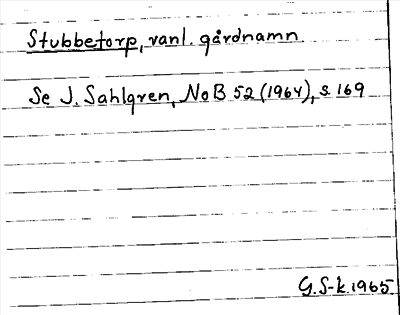 Stubbetorp, vanl. gårdnamn.
Se J. Sahlgren, NoB 52 (1964), s. 169
G. S-k. 1965